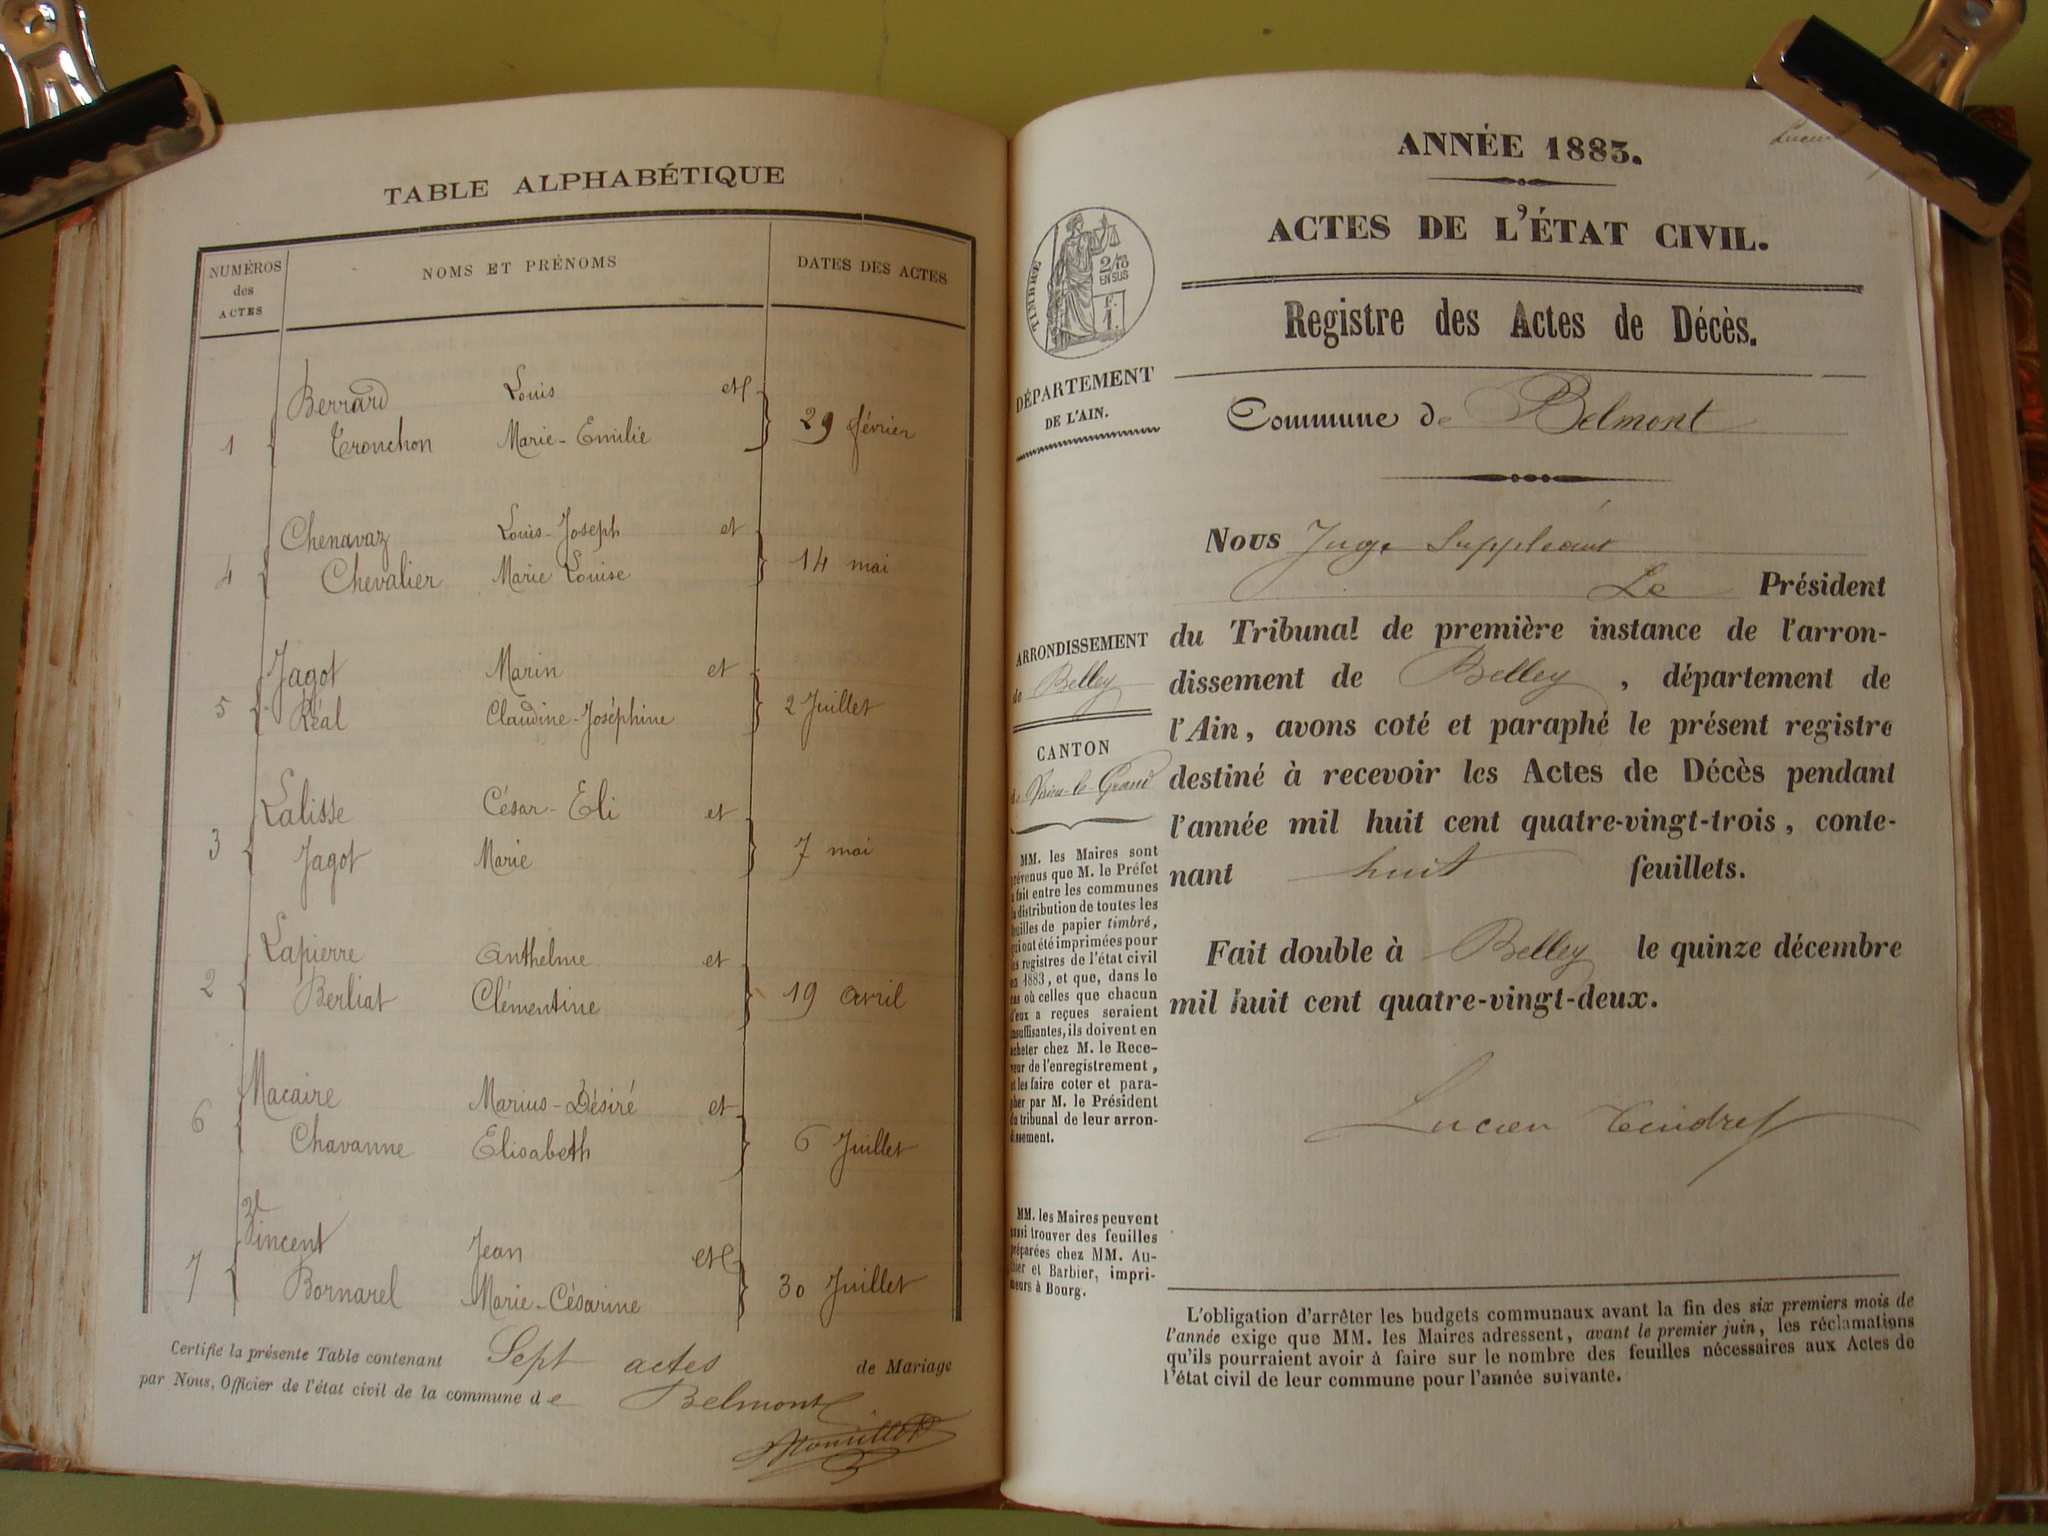 TABLE ALPHABÉTIQUE
NUMÉROS
des
ACTES
NOMS ET PRÉNOMS
DATES DES ACTES
Berrard Louis et
1 Tronchon Marie-Emilie 29 février
Chenavaz Louis-Joseph et
4 Chevalier Marie Louise 14 mai
Jagot Marin et
5 Réal Claudine-Joséphine 2 Juillet
Lalisse César-Eli et
3 Jagot Marie 7 mai
Lapierre Anthelme et
2 Berliat Clémentine 19 avril
Macaire Marius-Désiré et
6 Chavanne Elisabeth 6 Juillet
Vincent Jean et
7 Bornarel Marie-Césarine 30 Juillet
Certifie la présente Table contenant Sept actes de Mariage
par Nous, Officier de l'état civil de la commune de Belmont
ANNÉE 1883.
ACTES DE L'ÉTAT CIVIL.
Registre des Actes de Décès.
TIMBRE
2/10
EN SUS
F.
1.
DÉPARTEMENT
DE L'AIN.
Commune de Belmont
Nous Juge Suppléant
Le Président
du Tribunal de première instance de l'arron-
dissement de Belley, département de
l'Ain, avons coté et paraphé le présent registre
destiné à recevoir les Actes de Décès pendant
l'année mil huit cent quatre-vingt-trois, conte-
nant huit feuillets.
Fait double à Belley le quinze décembre
mil huit cent quatre-vingt-deux.
Lucien Tendret
ARRONDISSEMENT
de Belley
CANTON
de Virieu-le-Grand
MM. les Maires sont
prévenus que M. le Préfet
a fait entre les communes
la distribution de toutes les
feuilles de papier timbré,
qui ont été imprimées pour
les registres de l'état civil
en 1883, et que, dans le
cas où celles que chacun
d'eux a reçues seraient
insuffisantes, ils doivent en
acheter chez M. le Rece-
veur de l'enregistrement,
et les faire coter et para-
pher par M. le Président
du tribunal de leur arron-
dissement.
MM. les Maires peuvent
aussi trouver des feuilles
préparées chez MM. Au-
thier et Barbier, impri-
meurs à Bourg.
L'obligation d'arrêter les budgets communaux avant la fin des six premiers mois de
l'année exige que MM. les Maires adressent, avant le premier juin, les réclamations
qu'ils pourraient avoir à faire sur le nombre des feuilles nécessaires aux Actes de
l'état civil de leur commune pour l'année suivante.